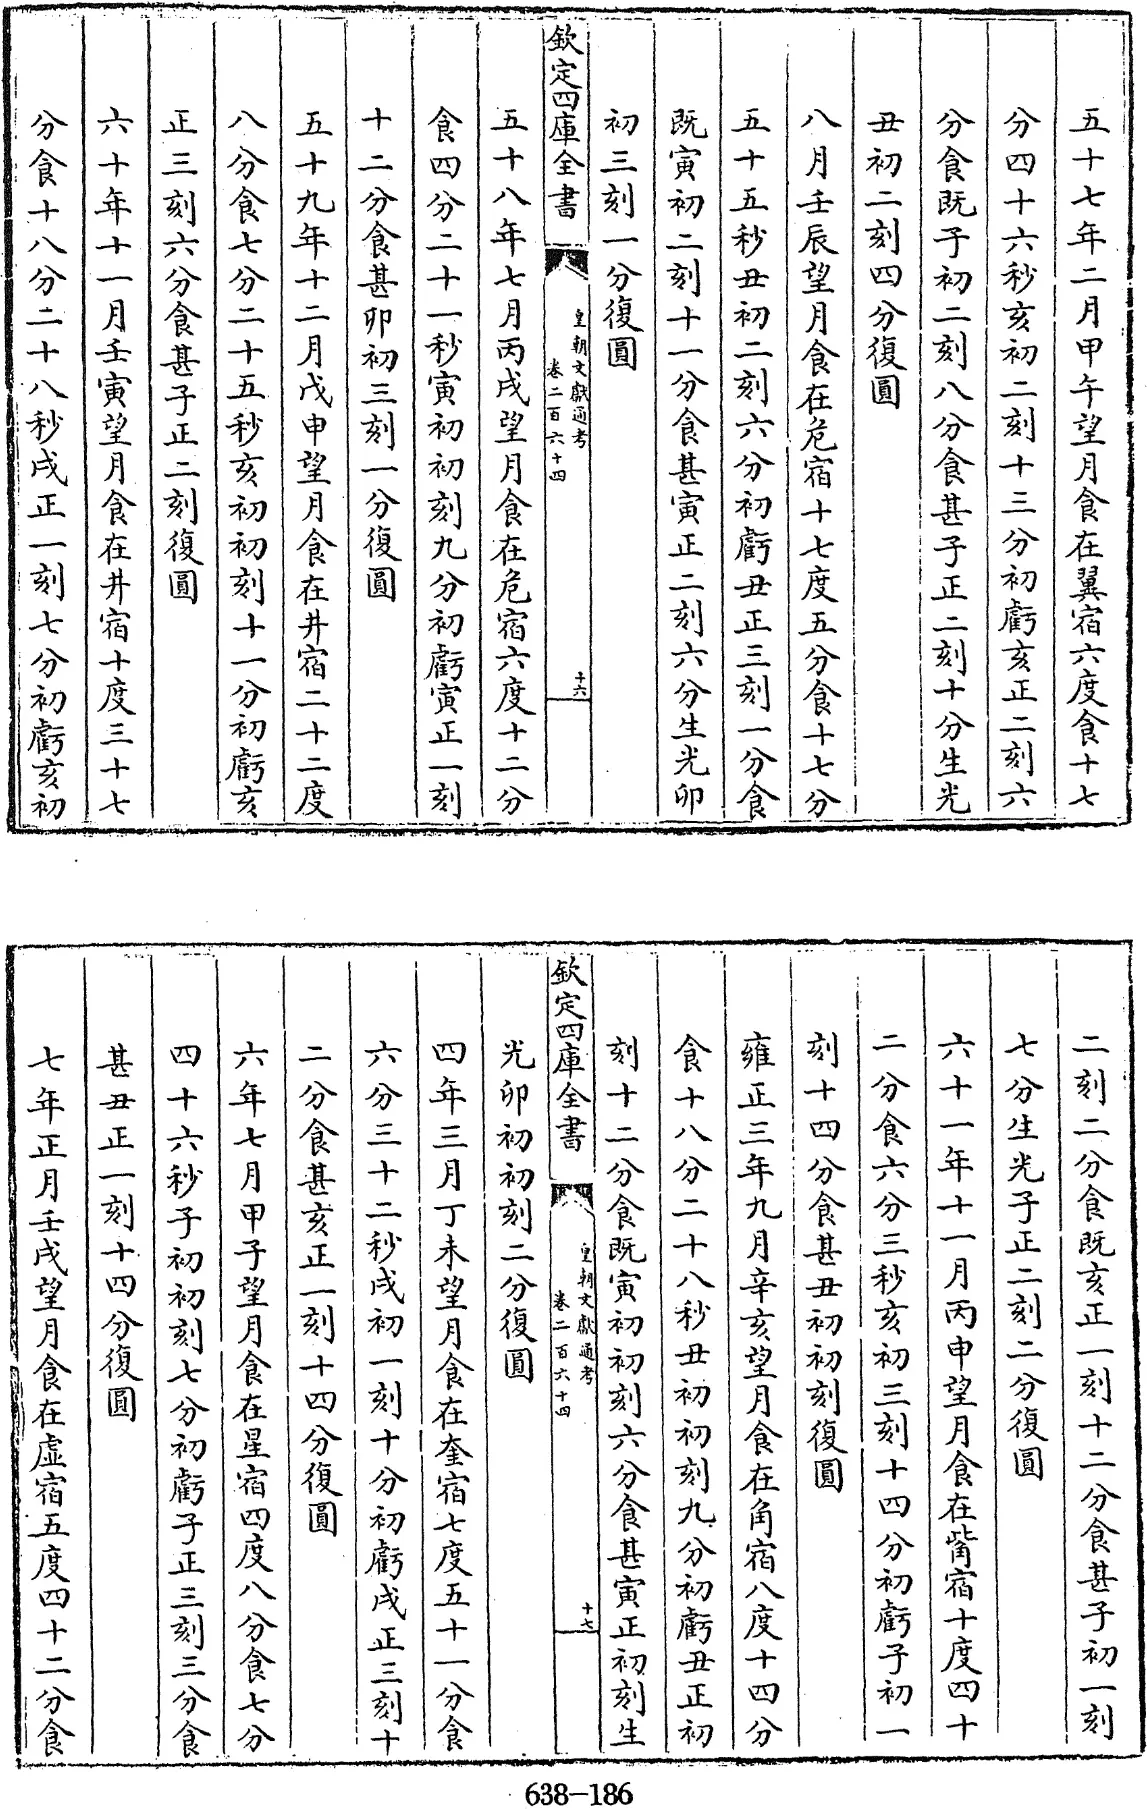 五十七年二月甲午望月食在翼宿六度食十七
分四十六秒亥初二刻十三分初虧亥正二刻六
分食既子初二刻八分食甚子正二刻十分生光
丑初二刻四分復圓
八月壬辰望月食在危宿十七度五分食十七分
五十五秒丑初二刻六分初虧丑正三刻一分食
既寅初二刻十一分食甚寅正二刻六分生光卯
初三刻一分復圓
欽定四庫全書
皇朝文獻通考
卷二百六十四
十六
五十八年七月丙戌望月食在危宿六度十二分
食四分二十一秒寅初初刻九分初虧寅正一刻
十二分食甚卯初三刻一分復圓
五十九年十二月戊申望月食在井宿二十二度
八分食七分二十五秒亥初初刻十一分初虧亥
正三刻六分食甚子正二刻復圓
六十年十一月壬寅望月食在井宿十度三十七
分食十八分二十八秒戌正一刻七分初虧亥初
二刻二分食既亥正一刻十二分食甚子初一刻
七分生光子正二刻二分復圓
六十一年十一月丙申望月食在觜宿十度四十
二分食六分三秒亥初三刻十四分初虧子初一
刻十四分食甚丑初初刻復圓
雍正三年九月辛亥望月食在角宿八度十四分
食十八分二十八秒丑初初刻九分初虧丑正初
刻十二分食既寅初初刻六分食甚寅正初刻生
欽定四庫全書
皇朝文獻通考
卷二百六十四
十七
光卯初初刻二分復圓
四年三月丁未望月食在奎宿七度五十一分食
六分三十二秒戌初一刻十分初虧戌正三刻十
二分食甚亥正一刻十四分復圓
六年七月甲子望月食在星宿四度八分食七分
四十六秒子初初刻七分初虧子正三刻三分食
甚丑正一刻十四分復圓
七年正月壬戌望月食在虛宿五度四十二分食
638-186